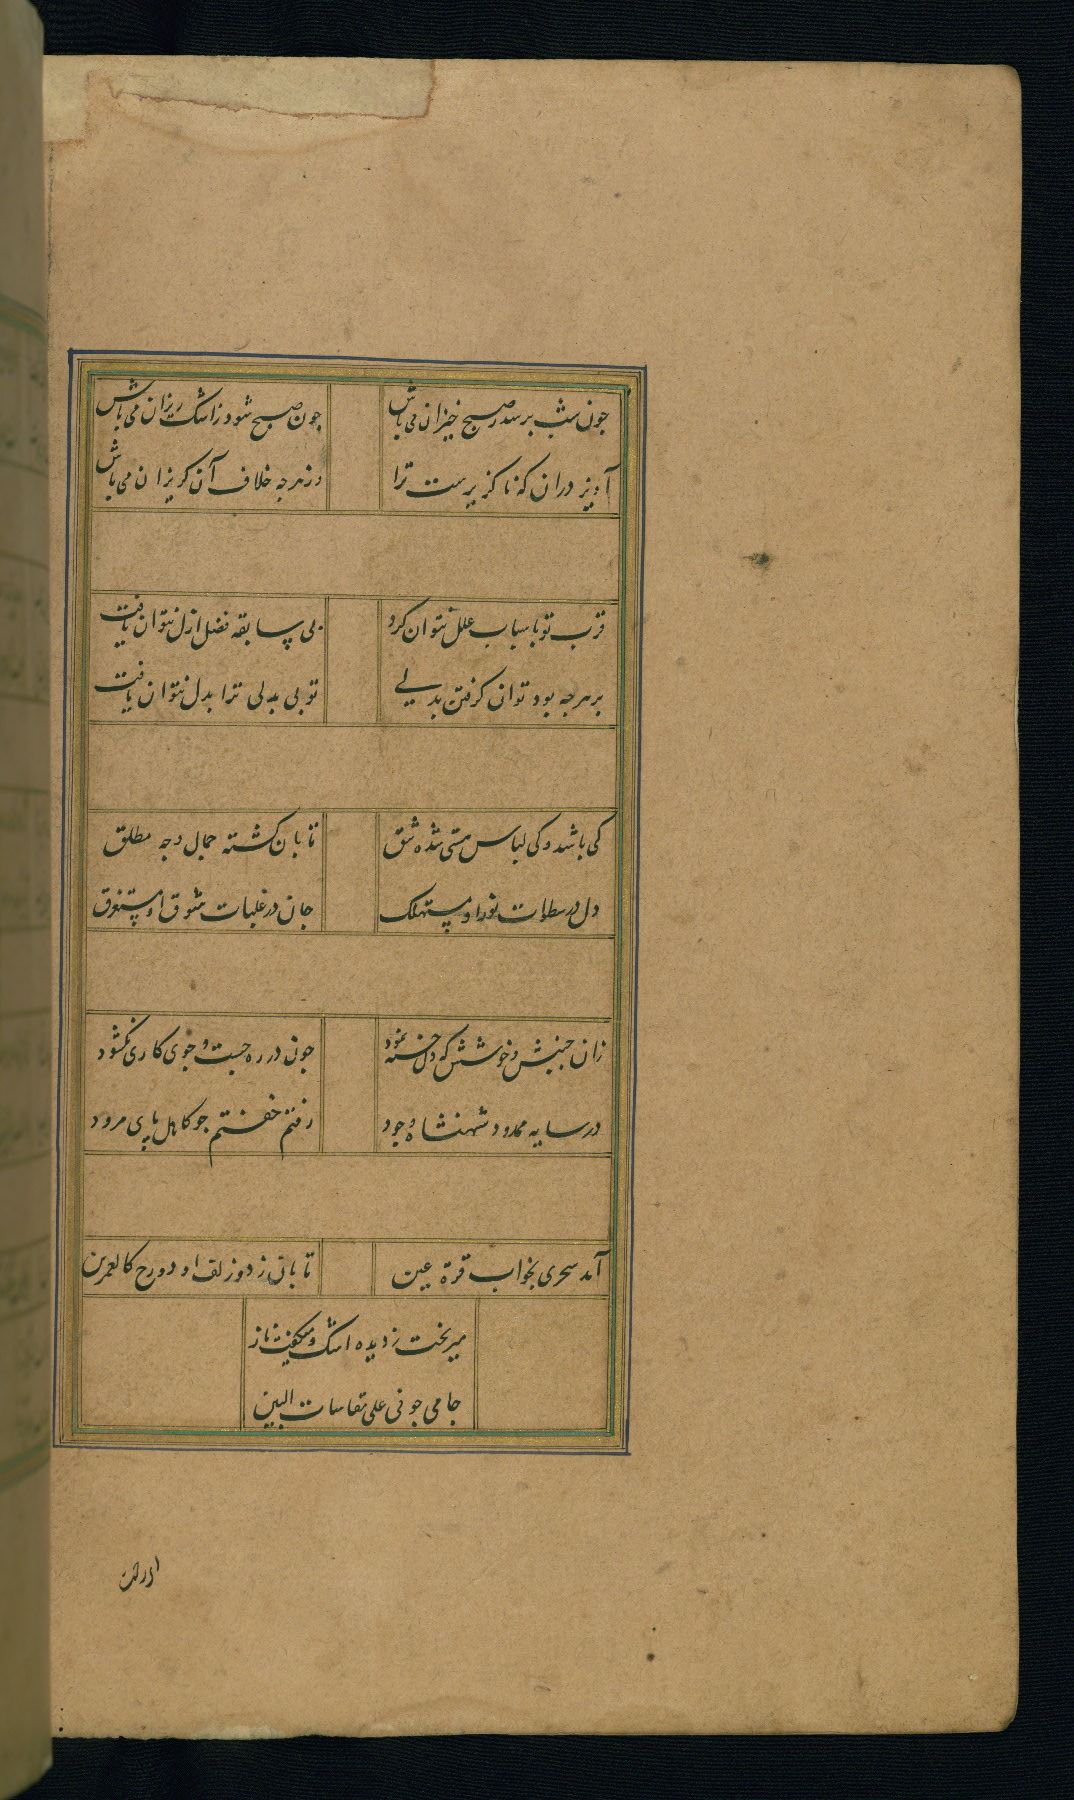 چون شب برسد ز صبح خیزان می باش
چون صبح شود ز اشک ریزان می باش
آویز دران که ناگزیرست ترا
وز هرچه خلاف آن گریزان می باش
قرب تو باسباب علل نتوان کرد
بی سابقه فضل ازل نتوان یافت
بر هرچه بود توان گرفتن بدلی
تو بی بدلی ترا بدل نتوان یافت
کی باشد و کی لباس هستی شده شق
تابان گشته جمال وجه مطلق
دل در سطوات نور او مستهلک
جان در غلبات شوق او مستغرق
زان جنبش و
چون در ره جست و جوی کاری نگشود
در سایه ممدود شهنشاه وجود
رفتم خفتم چو کاهل پای مرود
آمد سحری بخواب قرة عین
تابان ز دو زلف او دو رخ کالقمرین
میریخت ز دیده اشک و میگفت بناز
جامی جونی علی مقاسات البین